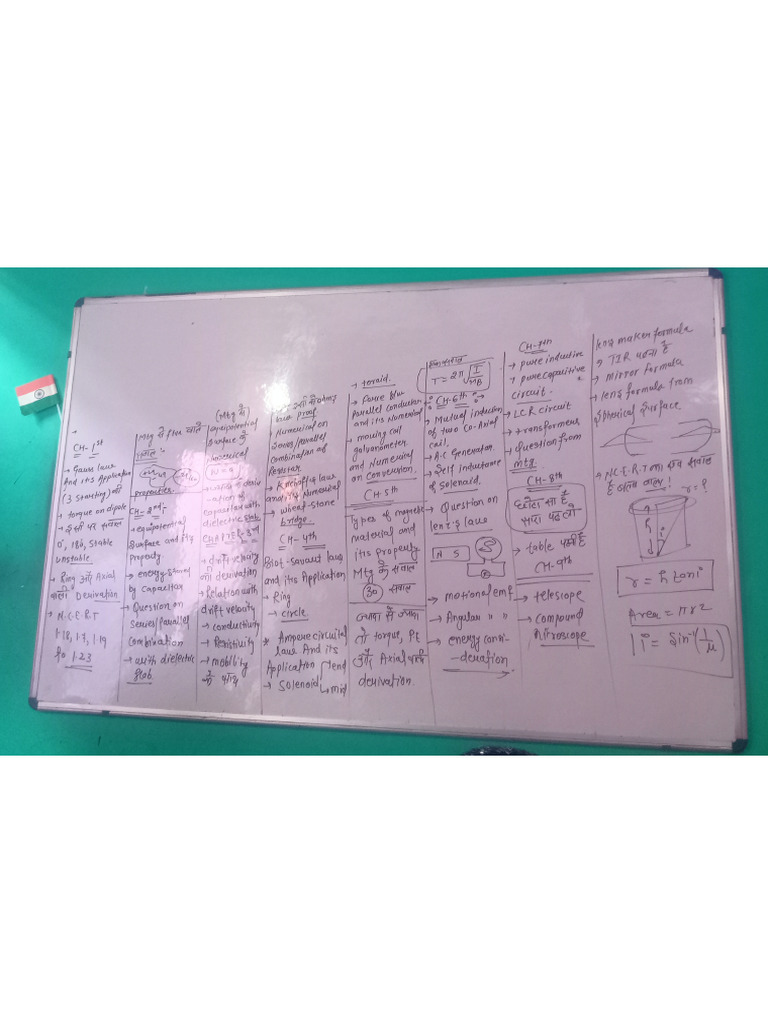 CH-1st
→ Gauss law
And its Application
(3 starting) की
→ torque on dipole
0, 180, stable
unstable
→ Ring और Axial
वाला Derivation
→ N.C.E.R.T
1.18, 1.19
to 1.23
Mtg से
properties.
CH-2nd:-
→ equipotential
Surface and its
Property.
→ energy stored
by Capacitor
→ Question on
Series/parallel
Combination
→ with dielectric
slab
(Mtg से
equipotential
Surface के
numerical
capacitor with
dielectric slab
CHAPTER-3rd
→ drift velocity
की derivation
→ Relation with
drift velocity
→ conductivity
→ Resistivity
→ mobility
के साथ
proof
→ Numerical on
Series/parallel
Combination of
Resistor
→ Kirchoff's law
and its Numerical
→ wheat-stone
bridge.
CH-4th
Biot-Savart law
and its Application
→ Ring
→ circle
* Ampere circuital
law And its
Application
→ Solenoid
end
mid
→ toroid.
→ Force b/w
parallel conductor
and its Numerical
→ moving coil
galvanometer
and Numerical
on Conversion.
CH-5th
Types of magnetic
material and
its property
Mtg के सवाल
30 सवाल
तो torque, PE
और Axial वाली
derivation.
T = 2π √I/MB
CH-6th
→ Mutual induction
of two Co-Axial
coil.
→ A.C Generator.
→ Self Inductance
of Solenoid.
→ Question on
lenz's law
N S
→ motional emf
→ Angular " "
→ energy consi-
-deration
CH-7th
→ pure inductive
→ pure capacitive
circuit.
→ LCR circuit
→ transformers
→ Question from
mtg.
CH-8th
छोटा सा है
सारा पढ़ लो
→ table पढ़नी है
CH-9th
→ telescope
→ Compound
Microscope
lens maker formula
→ TIR पढ़ना है
→ mirror formula
→ lens formula from
spherical surface
→ N.C.E.R.T का एक सवाल
है
r = ?
h
i
r = h tan i
Area = πr2
i = sin⁻¹(1/μ)